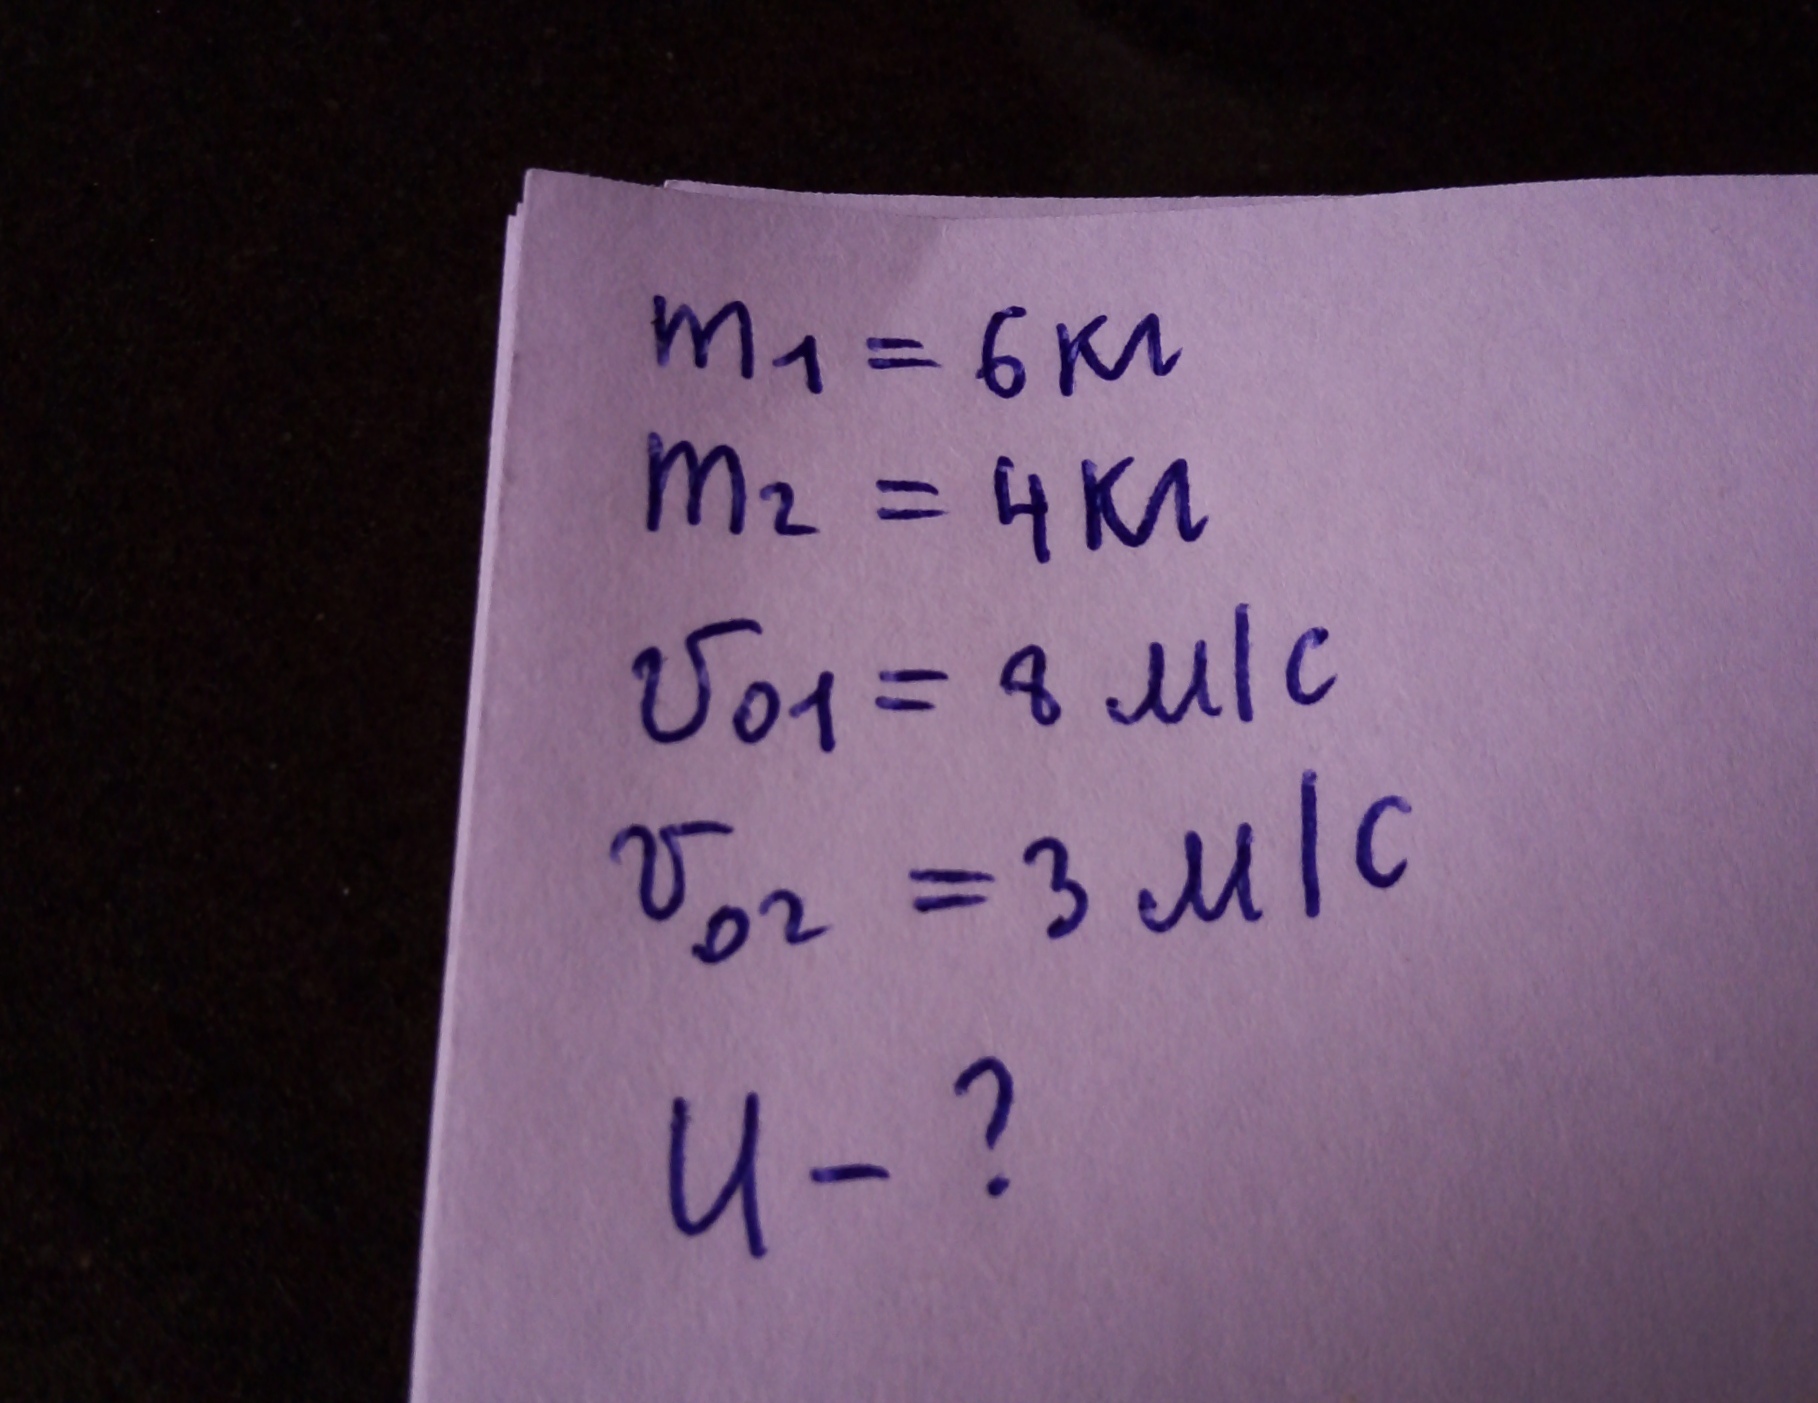 m1 = 6 кг
m2 = 4 кг
v01 = 8 м/с
v02 = 3 м/с
U - ?